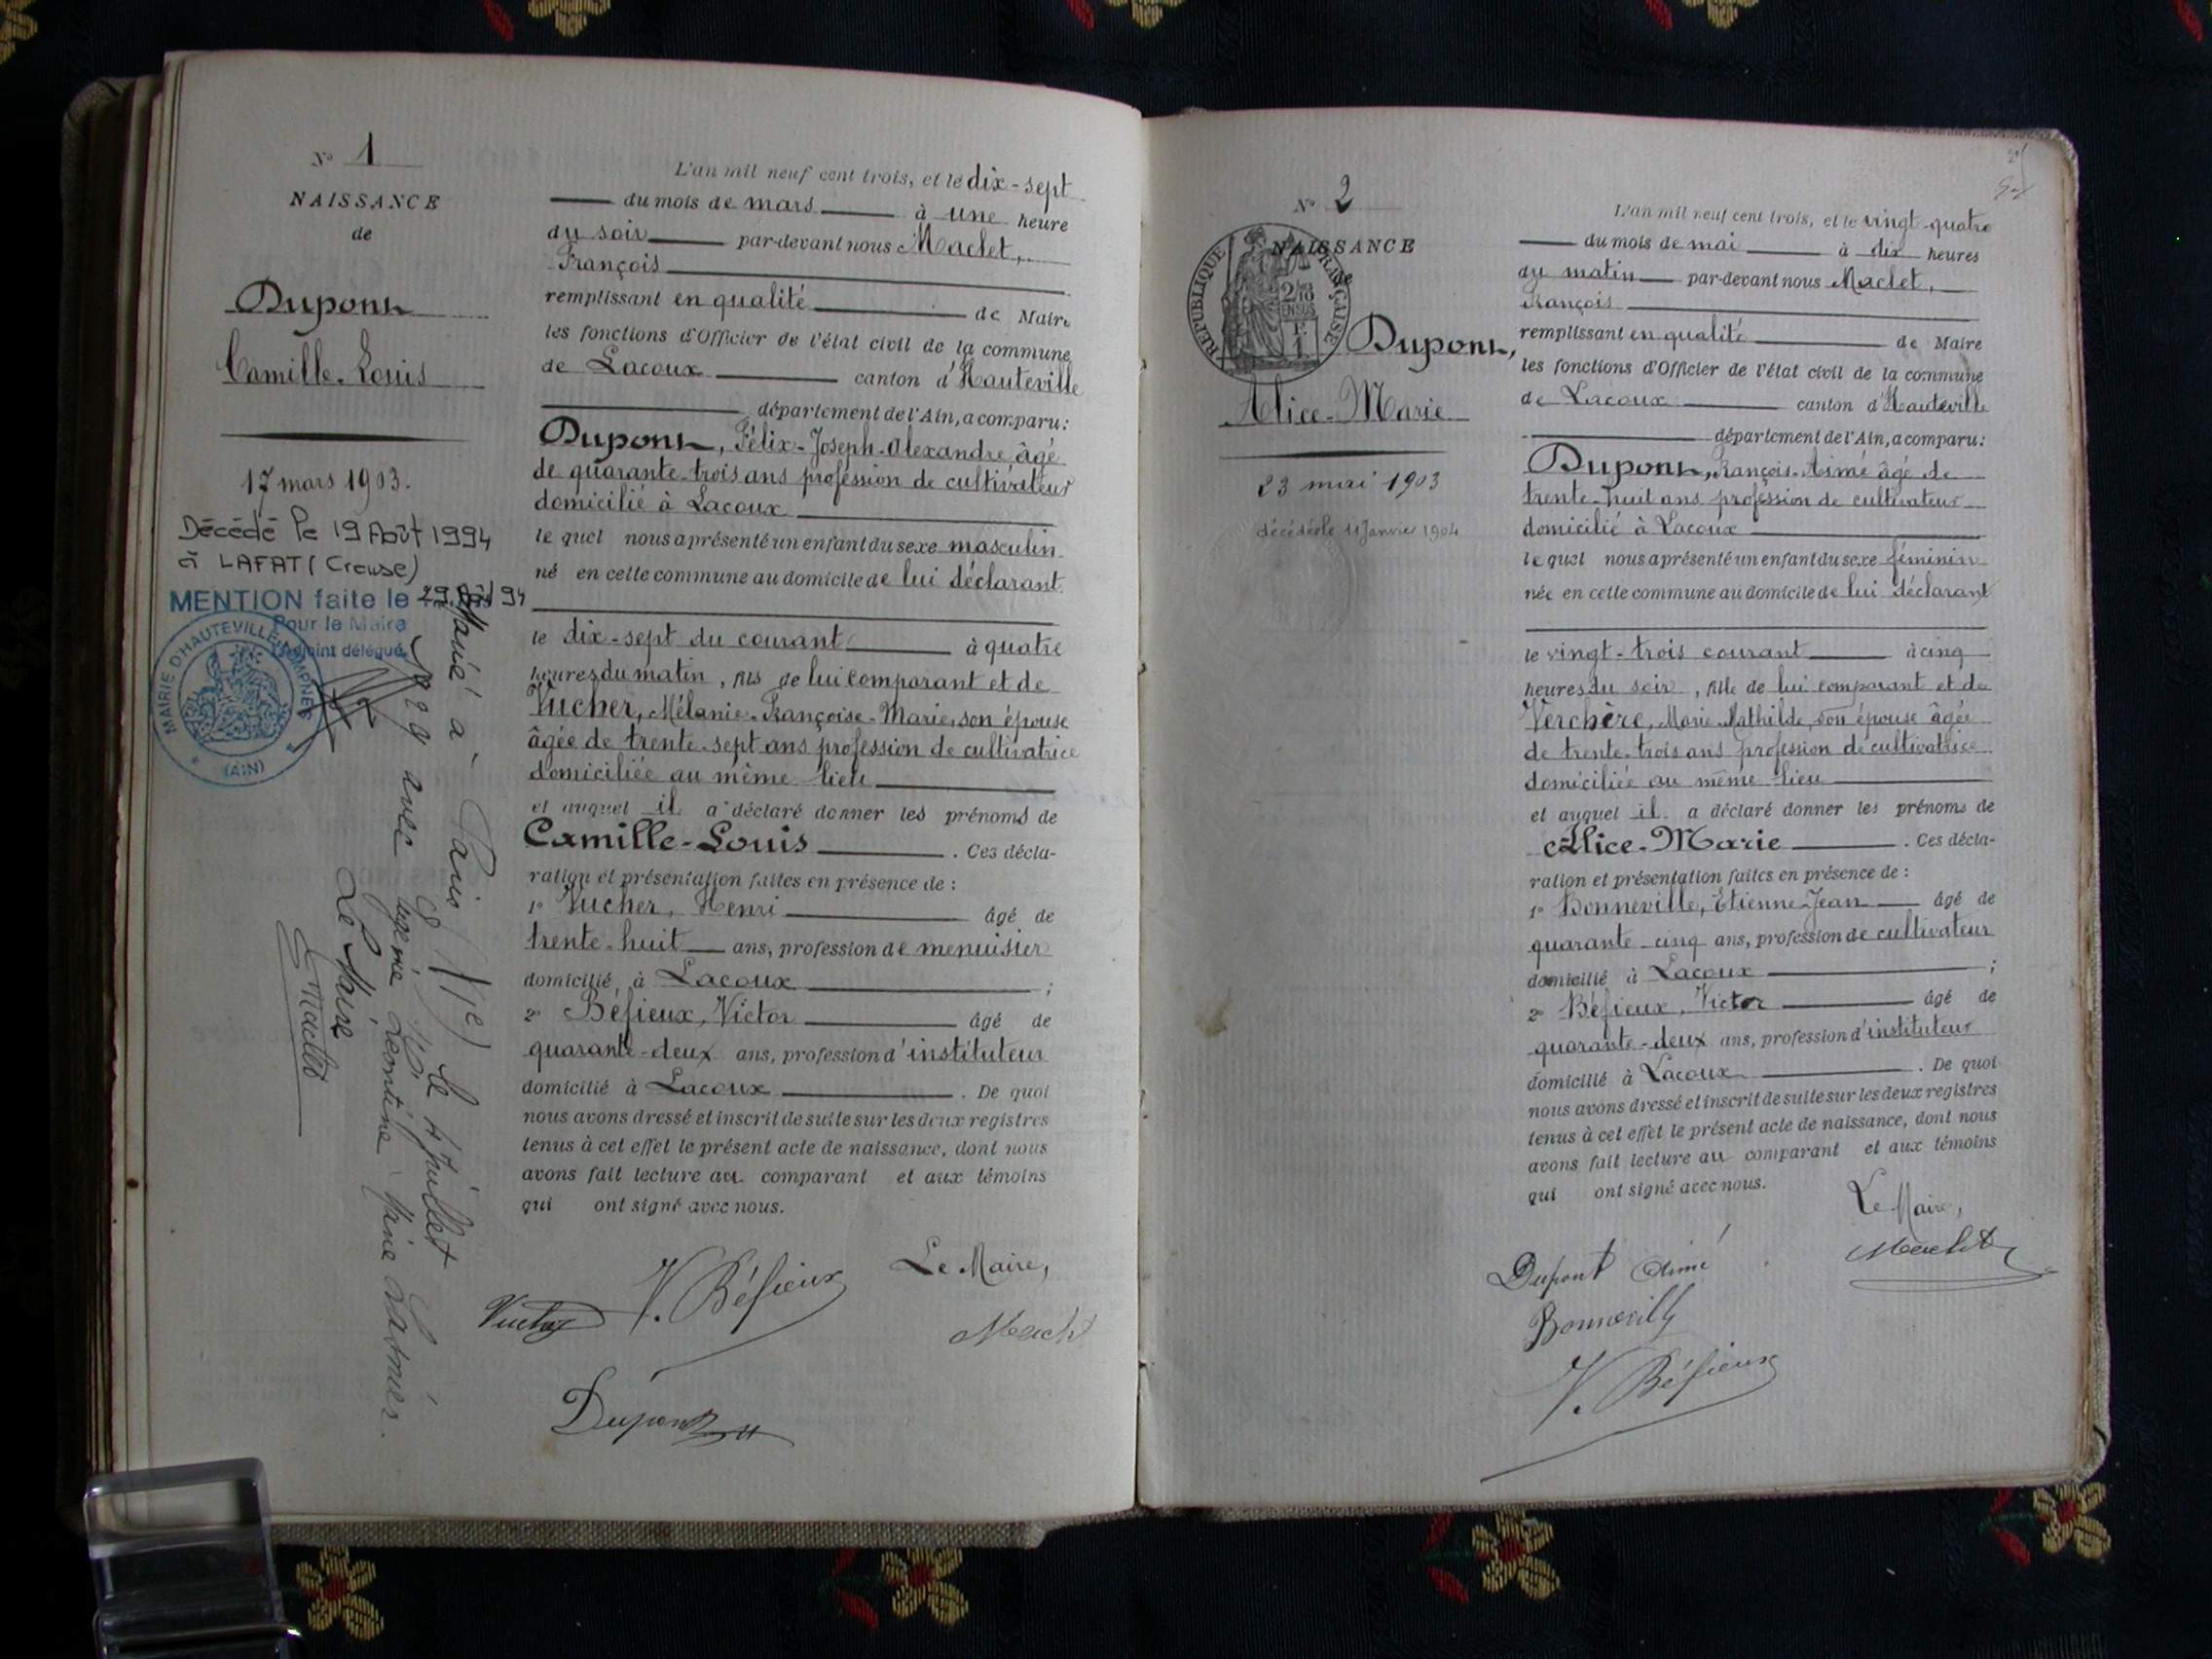 N° 1
NAISSANCE
de
Dupont
Camille-Louis
17 mars 1903.
Décédé le 19 Août 1994
à LAFAT (Creuse)
MENTION faite le 29 Août 94
Pour le Maire
L'Adjoint délégué
MAIRIE D'HAUTEVILLE-LOMPNES
(AIN)
Marié à Paris (11e) le 4 juillet
1929 avec Eugénie Léontine
Le Maire
Maclet
L'an mil neuf cent trois, et le dix-sept
du mois de mars à une heure
du soir par-devant nous Maclet,
François
remplissant en qualité de Maire
les fonctions d'Officier de l'état civil de la commune
de Lacoux canton d'Hauteville
département de l'Ain, a comparu:
Dupont, Félix-Joseph-Alexandre âgé
de quarante-trois ans profession de cultivateur
domicilié à Lacoux
le quel nous a présenté un enfant du sexe masculin
né en cette commune au domicile de lui déclarant
le dix-sept du courant à quatre
heures du matin, fils de lui comparant et de
Vucher, Mélanie-Françoise-Marie, son épouse
âgée de trente-sept ans profession de cultivatrice
domiciliée au même lieu
et auquel il a déclaré donner les prénoms de
Camille-Louis . Ces décla-
ration et présentation faites en présence de :
1° Vucher, Henri âgé de
trente-huit ans, profession de menuisier
domicilié à Lacoux ;
2° Béfieux, Victor âgé de
quarante-deux ans, profession d'instituteur
domicilié à Lacoux . De quoi
nous avons dressé et inscrit de suite sur les deux registres
tenus à cet effet le présent acte de naissance, dont nous
avons fait lecture au comparant et aux témoins
qui ont signé avec nous.
Le Maire,
Vucher V. Béfieux Maclet
Dupont
N° 2
NAISSANCE
de
REPUBLIQUE FRANÇAISE
2/10
EN SUS
Dupont,
Alice-Marie
23 mai 1903
décédée le 11 Janvier 1904
L'an mil neuf cent trois, et le vingt-quatre
du mois de mai à dix heures
du matin par-devant nous Maclet,
François
remplissant en qualité de Maire
les fonctions d'Officier de l'état civil de la commune
de Lacoux canton d'Hauteville
département de l'Ain, a comparu:
Dupont, François-Aimé âgé de
trente-huit ans profession de cultivateur
domicilié à Lacoux
le quel nous a présenté un enfant du sexe féminin
née en cette commune au domicile de lui déclarant
le vingt-trois courant à cinq
heures du soir, fille de lui comparant et de
Verchère, Marie-Mathilde, son épouse âgée
de trente-trois ans profession de cultivatrice
domiciliée au même lieu
et auquel il a déclaré donner les prénoms de
Alice-Marie . Ces décla-
ration et présentation faites en présence de :
1° Bonneville, Etienne-Jean âgé de
quarante-cinq ans, profession de cultivateur
domicilié à Lacoux ;
2° Béfieux, Victor âgé de
quarante-deux ans, profession d'instituteur
domicilié à Lacoux . De quoi
nous avons dressé et inscrit de suite sur les deux registres
tenus à cet effet le présent acte de naissance, dont nous
avons fait lecture au comparant et aux témoins
qui ont signé avec nous.
Le Maire,
Dupont Aimé Maclet
Bonneville
V. Béfieux